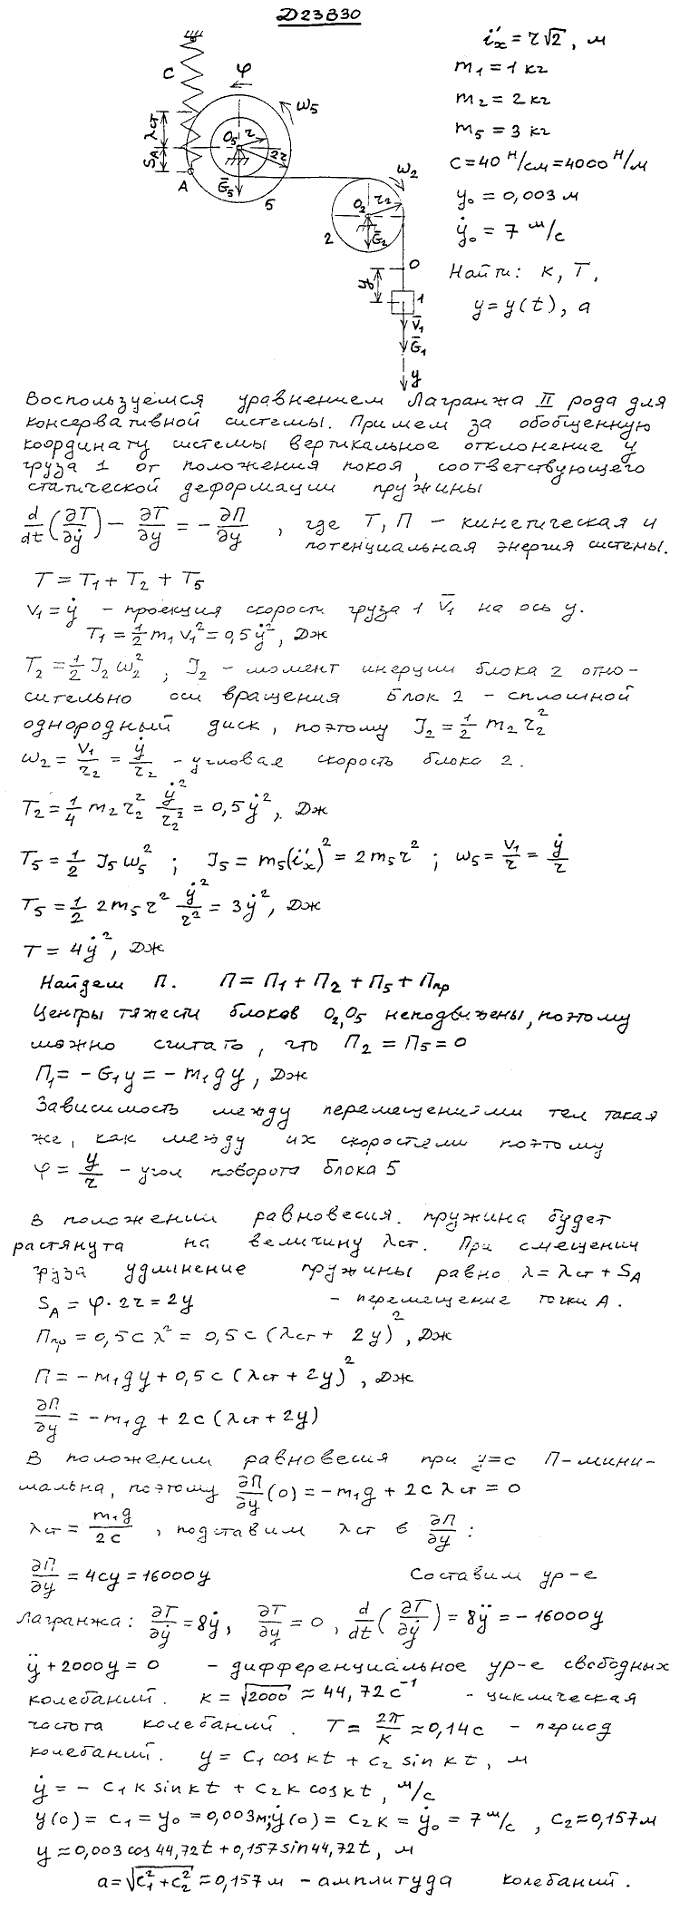 D23B30
C
φ
ω₅
λст
S_A
O₅
r
2r
A
Ḡ₅
5
ω₂
O₂
r₂
Ḡ₂
2
O
y₀
1
V̄₁
Ḡ₁
y
i'ₓ = r√2, м
m₁ = 1 кг
m₂ = 2 кг
m₅ = 3 кг
C = 40 Н/см = 4000 Н/м
y₀ = 0,003 м
ẏ₀ = 7 м/с
Найти: к, T,
y = y(t), a
Воспользуемся уравнением Лагранжа II рода для
консервативной системы. Примем за обобщенную
координату системы вертикальное отклонение y
груза 1 от положения покоя, соответствующего
статической деформации пружины
d/dt(∂T/∂ẏ) − ∂T/∂y = −∂П/∂y, где T, П – кинетическая и
потенциальная энергия системы.
T = T₁ + T₂ + T₅
V₁ = ẏ – проекция скорости груза 1 V̄₁ на ось y.
T₁ = 1/2 m₁V₁² = 0,5ẏ², Дж
T₂ = 1/2 J₂ω₂²; J₂ – момент инерции блока 2 отно-
сительно оси вращения Блок 2 – сплошной
однородный диск, поэтому J₂ = 1/2 m₂r₂²
ω₂ = V₁/r₂ = ẏ/r₂ – угловая скорость блока 2.
T₂ = 1/4 m₂r₂² ẏ²/r₂² = 0,5ẏ², Дж
T₅ = 1/2 J₅ω₅²; J₅ = m₅(i'ₓ)² = 2m₅r²; ω₅ = V₁/r = ẏ/r
T₅ = 1/2 2m₅r² ẏ²/r² = 3ẏ², Дж
T = 4ẏ², Дж
Найдем П. П = П₁ + П₂ + П₅ + Ппр
Центры тяжести блоков O₂, O₅ неподвижны, поэтому
можно считать, что П₂ = П₅ = 0
П₁ = −G₁y = −m₁gy, Дж
Зависимость между перемещениями тел такая
же, как между их скоростями поэтому
φ = y/r – угол поворота блока 5
В положении равновесия пружина будет
растянута на величину λст. При смещении
груза удлинение пружины равно λ = λст + S_A
S_A = φ·2r = 2y – перемещение точки A.
Ппр = 0,5cλ² = 0,5c(λст + 2y)², Дж
П = −m₁gy + 0,5c(λст + 2y)², Дж
∂П/∂y = −m₁g + 2c(λст + 2y)
В положении равновесия при y=o П-мини-
мальна, поэтому ∂П/∂y(0) = −m₁g + 2cλст = 0
λст = m₁g/2c, подставим λст в ∂П/∂y:
∂П/∂y = 4cy = 16000y Составим ур-е
Лагранжа: ∂T/∂ẏ = 8ẏ, ∂T/∂y = 0, d/dt(∂T/∂ẏ) = 8ÿ = −16000y
ÿ + 2000y = 0 – дифференциальное ур-е свободных
колебаний. к = √2000 ≈ 44,72 с⁻¹ – циклическая
частота колебаний. T = 2π/к ≈ 0,14с – период
колебаний. y = C₁ cos кt + C₂ sin кt, м
ẏ = − C₁ к sin кt + C₂ к cos кt, м/с
y(0) = C₁ = y₀ = 0,003м; ẏ(0) = C₂к = ẏ₀ = 7 м/с, C₂≈0,157м
y ≈ 0,003 cos 44,72t + 0,157 sin 44,72t, м
a = √(C₁² + C₂²) ≈ 0,157 м – амплитуда колебаний.